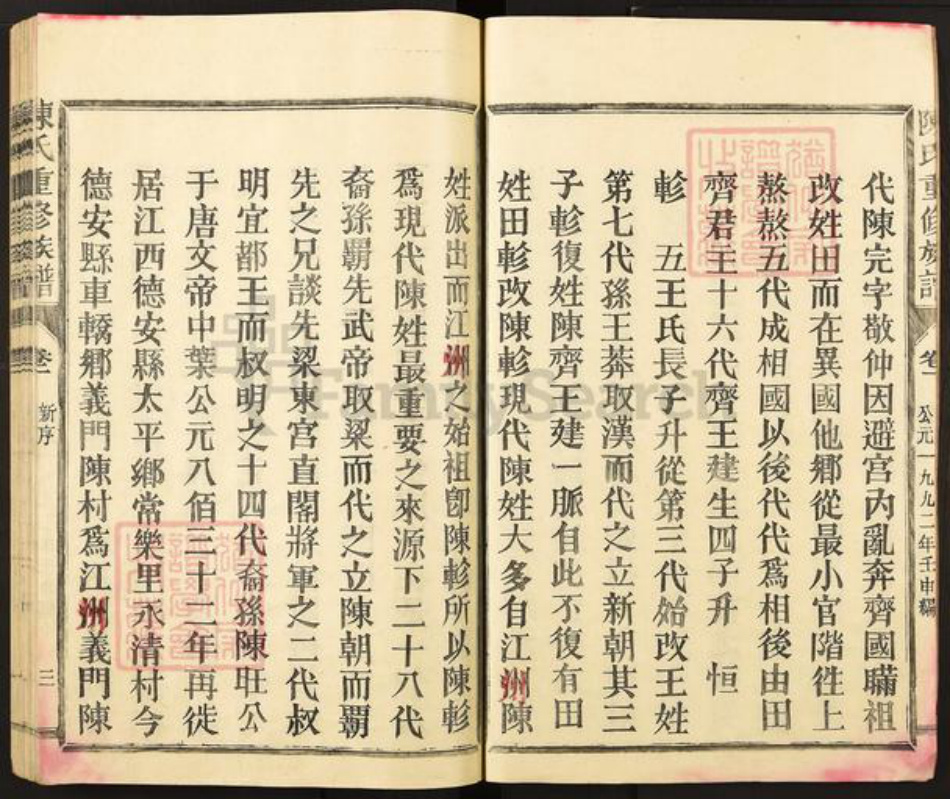 陳氏重修族譜 卷一 公元一九九二年壬申編
代陳完字敬仲因避宮內亂奔齊國瞞祖
改姓田而在異國他鄉從最小官階徃上
熬熬五代成相國以後代代爲相後由田
齊君王十六代齊王建生四子升 恒
軫 五王氏長子升從第三代始改王姓
第七代孫王莽取漢而代之立新朝其三
子軫復姓陳齊王建一脈自此不復有田
姓田軫改陳軫現代陳姓大多自江州陳
姓派出而江州之始祖卽陳軫所以陳軫
爲現代陳姓最重要之來源下二十八代
裔孫霸先武帝取梁而代之立陳朝而霸
先之兄談先梁東宮直閣將軍之二代叔
明宜都王而叔明之十四代裔孫陳旺公
于唐文帝中葉公元八佰三十二年再徙
居江西德安縣太平鄉常樂里永清村今
德安縣車轎鄉義門陳村爲江州義門陳
陳氏重修族譜 卷一 新序 三
FamilySearch